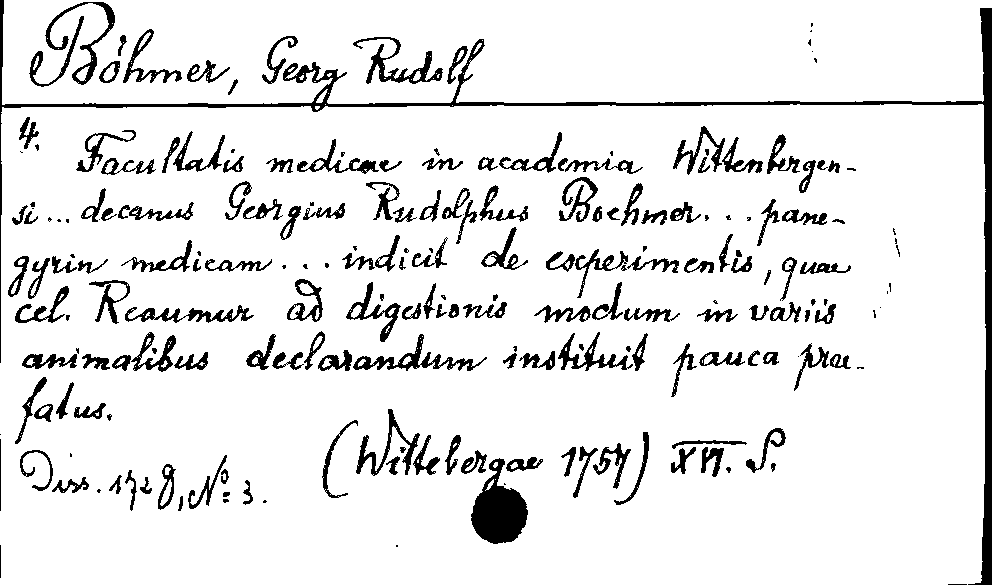 Böhmer, Georg Rudolf
4.
Facultatis medicae in academia Wittenbergen-
si... decanus Georgius Rudolphus Boehmer... pane-
gyrin medicam... indicit de experimentis, quae
cel. Reaumur ad digestionis modum in variis
animalibus declarandum instituit pauca prae-
fatus.
(Wittebergae 1757) XVI. S.
Diss. 172 8, No 3.